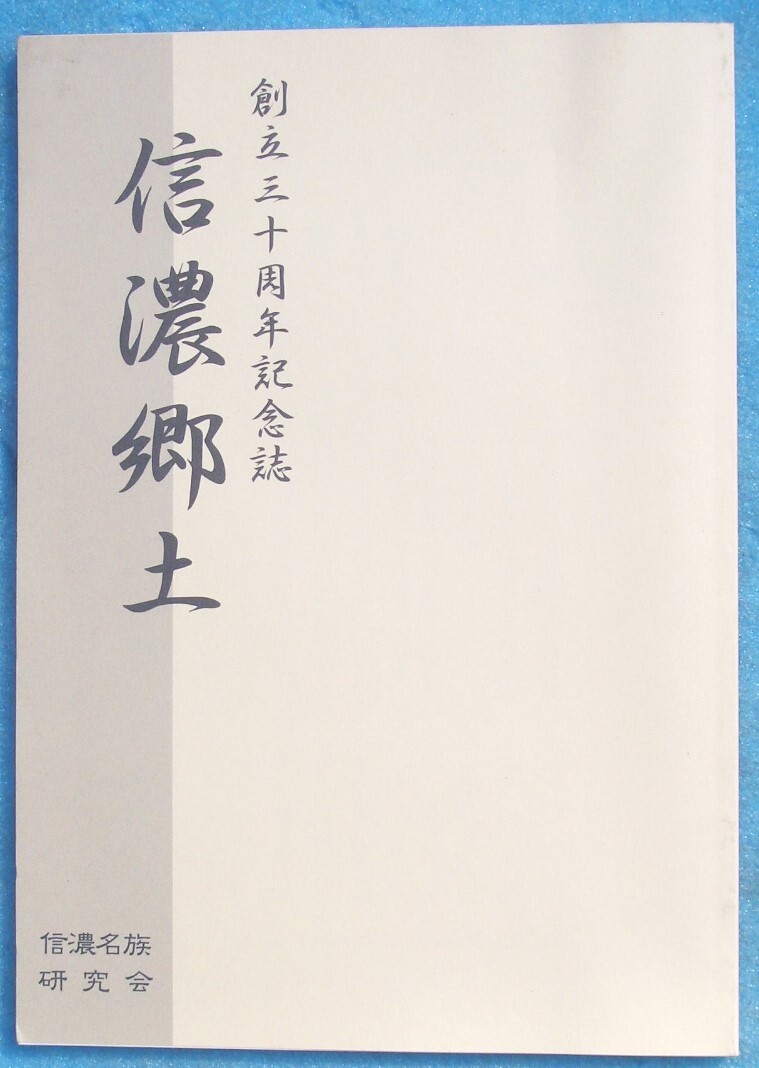 創立三十周年記念誌
信濃郷土
信濃名族
研究会